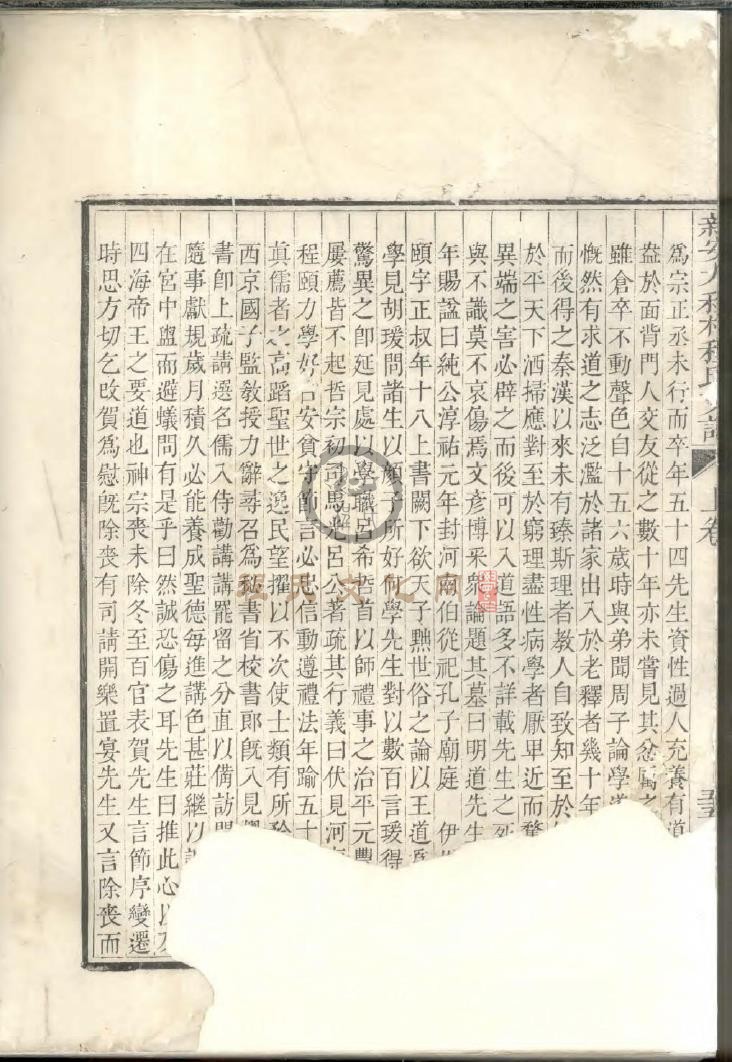 爲宗正丞未行而卒年五十四先生資性過人充養有道
盎於面背門人交友從之數十年亦未嘗見其忿厲之
雖倉卒不動聲色自十五六歲時與弟聞周子論學
慨然有求道之志泛濫於諸家出入於老釋者幾十年
而後得之秦漢以來未有臻斯理者教人自致知至於
於平天下洒掃應對至於窮理盡性病學者厭卑近而騖
異端之害必辟之而後可以入道語多不詳載先生之死
與不識莫不哀傷焉文彥博采衆論題其墓曰明道先生
年賜諡曰純公淳祐元年封河伯從祀孔子廟庭 伊
頤字正叔年十八上書闕下欲天子黜世俗之論以王道爲
學見胡瑗問諸生以顏子所好何學先生對以數百言瑗得
驚異之卽延見處以學職呂希哲首以師禮事之治平元豐
屢薦皆不起哲宗初司馬光呂公著疏其行義曰伏見河
程頤力學好古安貧守節言必忠信動遵禮法年踰五十
眞儒者之高蹈聖世之逸民望擢以不次使士類有所矜
西京國子監敎授力辭尋召爲秘書省校書郎旣入見
書卽上疏請選名儒入侍勸講講罷留之分直以備訪問
隨事獻規歲月積久必能養成聖德每進講色甚莊繼以
在宮中盥而避蟻問有是乎曰然誠恐傷之耳先生曰推此心以
四海帝王之要道也神宗喪未除冬至百官表賀先生言節序變遷
時思方切乞改賀爲慰旣除喪有司請開樂置宴先生又言除喪而
程氏文化网